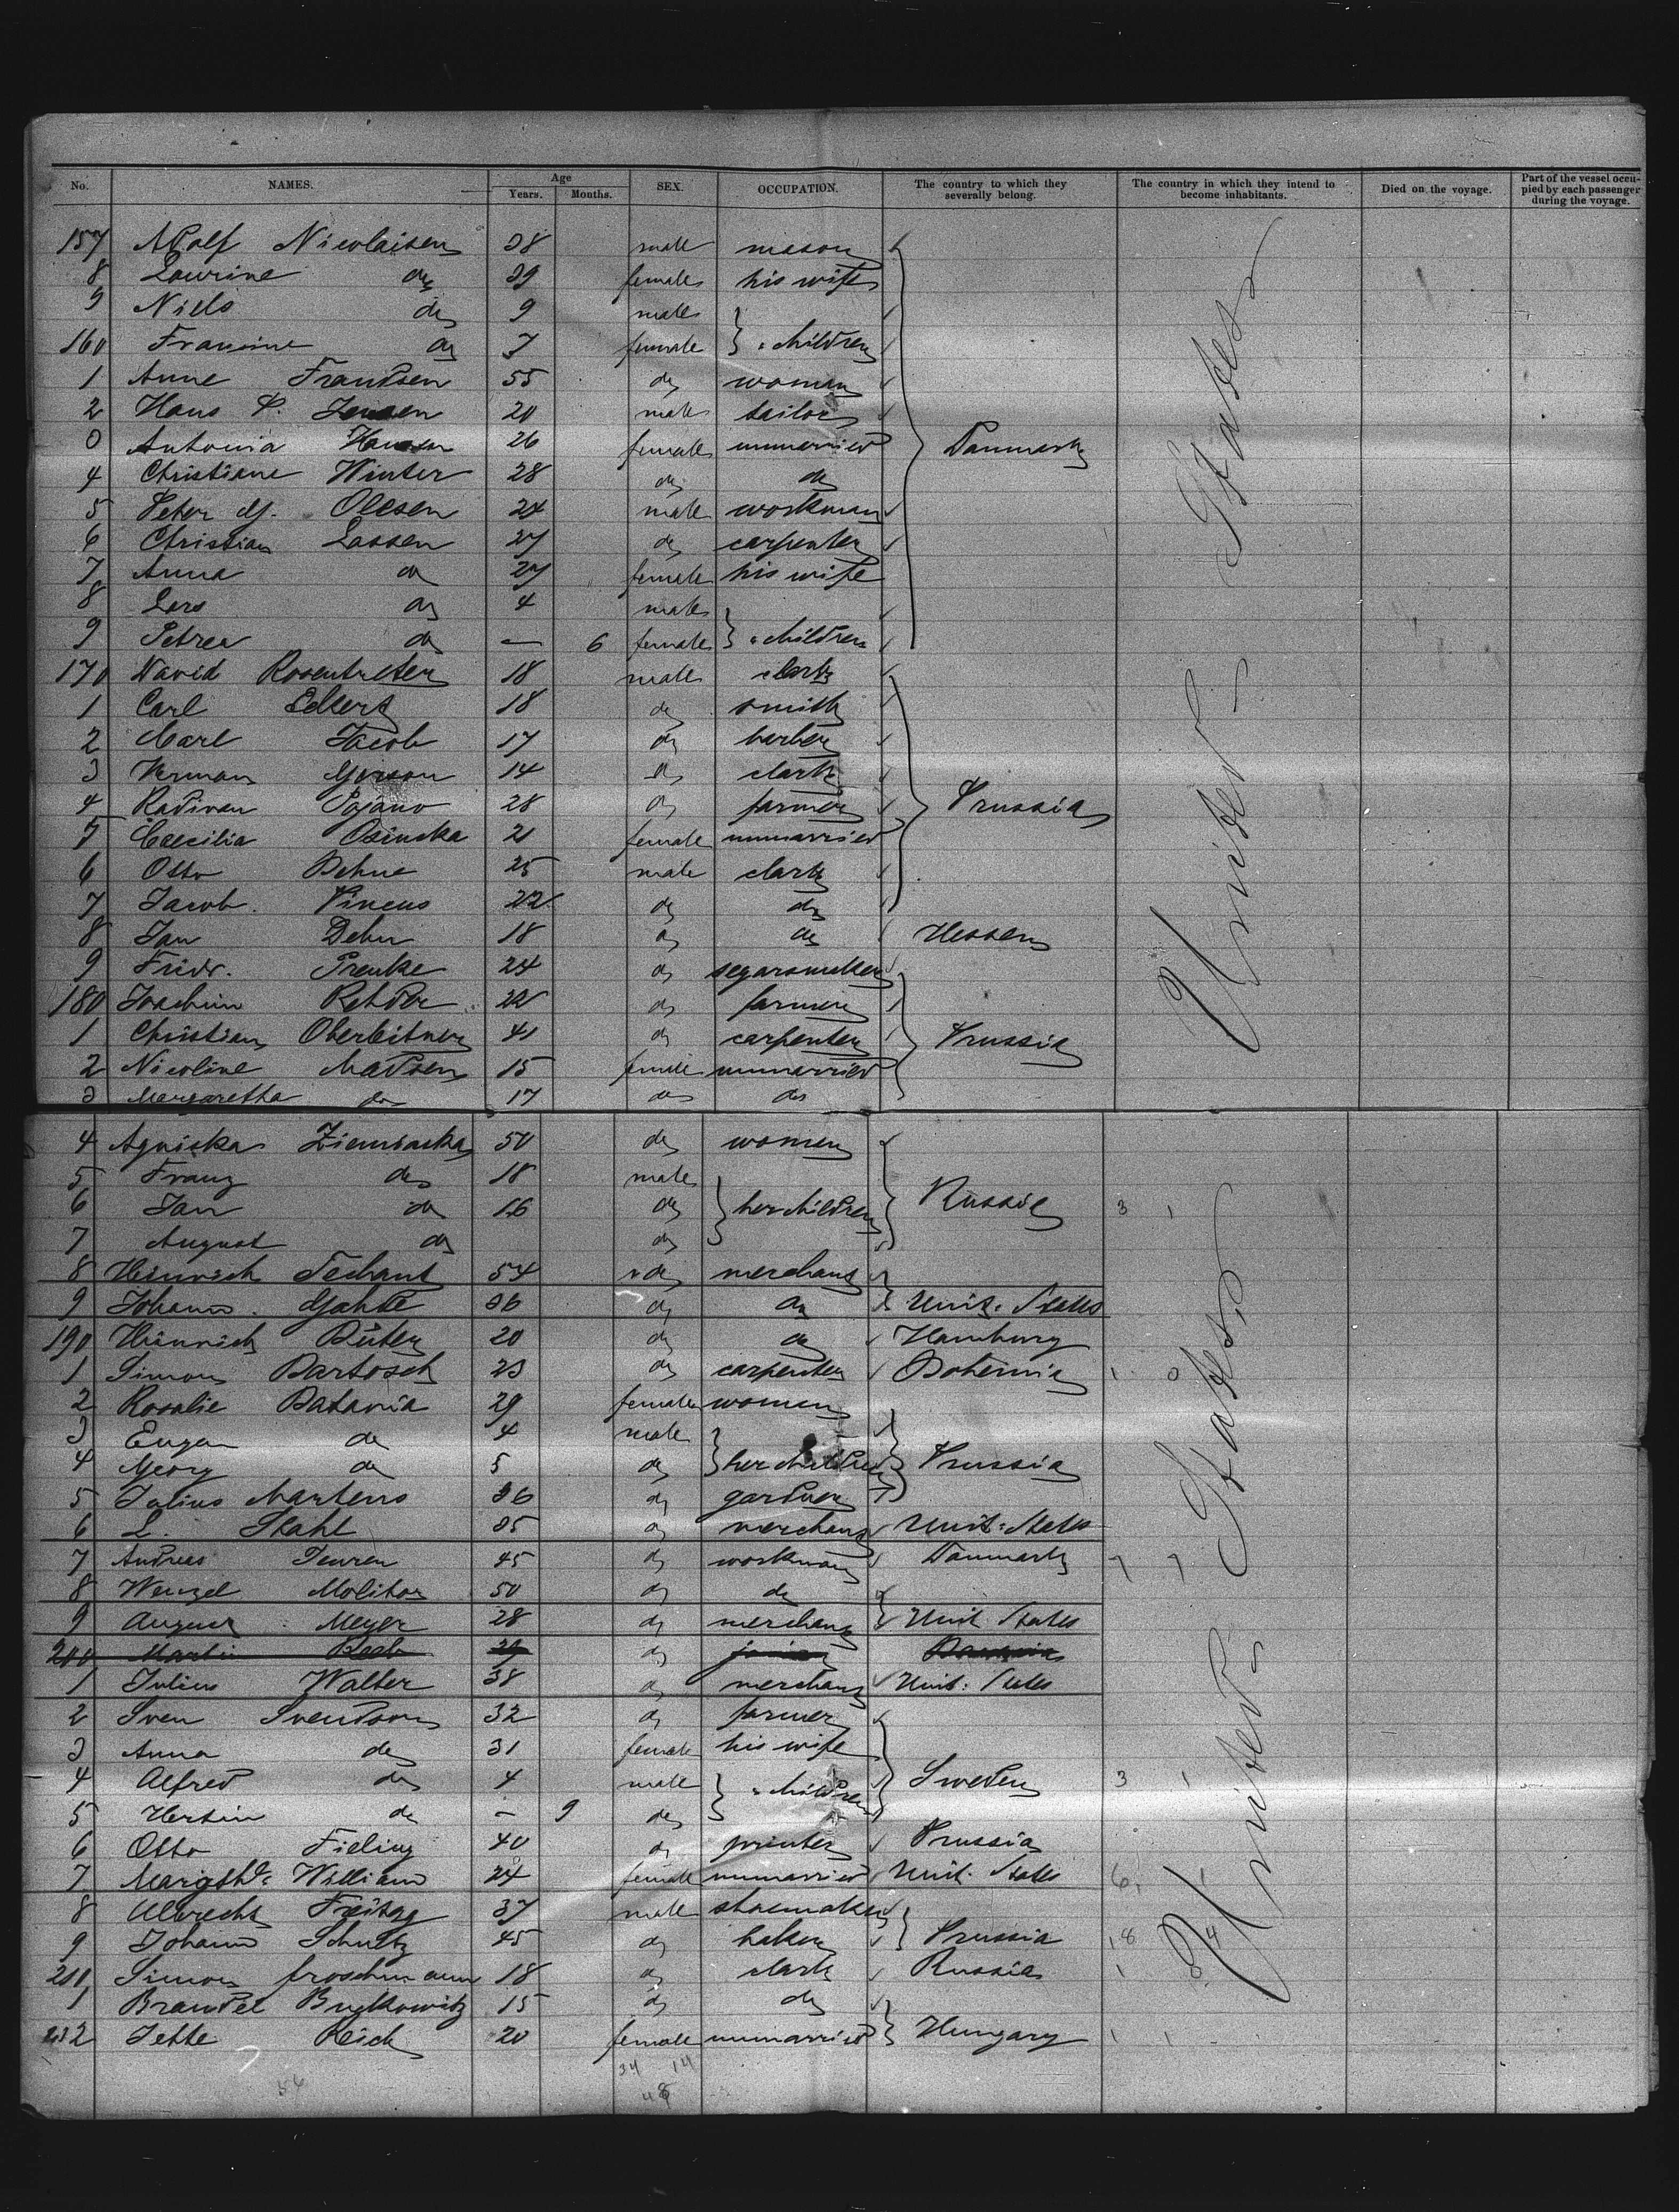 No. NAMES. Age Years. Months. SEX. OCCUPATION. The country to which they severally belong. The country in which they intend to become inhabitants. Died on the voyage. Part of the vessel occupied by each passenger during the voyage.
157 Adolf Nicolaisen 38 male mason
8 Laurine do 39 female his wife
9 Niels do 9 male
160 Francine do 7 female } " children
1 Anne Frandsen 55 do woman
2 Hans P. Jensen 20 male tailor
3 Antonia Hansen 26 female unmarried Danmark
4 Christiane Winter 28 do do
5 Peter G. Olesen 24 male workman
6 Christian Lassen 27 do carpenter
7 Anna do 27 female his wife
8 Lars do 4 male
9 Petrea do — 6 female } " children
170 David Rosentreter 18 male clark
1 Carl Eckert 18 do smith
2 Carl Jacob 17 do barber
3 Herman Gerson 14 do clark
4 Radivan Pojano 28 do farmer Prussia
5 Caecilia Osinska 21 female unmarried
6 Otto Dehne 25 male clark
7 Jacob Pincus 22 do do
8 Jan Dehn 18 do do Hessen
9 Friedr. Prenke 24 do segarsmaker
180 Joachim Rehder 22 do farmer
1 Christian Oberleitner 41 do carpenter Prussia
2 Nicoline Madsen 15 female unmarried
3 Margaretha do 17 do do
United States
4 Agniska Zieminska 50 do women
5 Franz do 18 male
6 Jan do 16 do } her children Russia 3 1
7 August do do
8 Heinrich Techant 54 do merchant
9 Johann Gahde 36 do do Unit. States
190 Heinrich Rüter 20 do do Hamburg
1 Simon Bartosch 23 do carpenter Bohemia 1 0
2 Rosalie Batavia 29 female women
3 Eugen do 4 male
4 Georg do 5 do } her children Prussia
5 Julius Martens 36 do gardner
6 L. Stahl 35 do merchant Unit: States
7 Andreas Teuren 45 do workman Danmark 7 7
8 Wenzel Molitor 50 do do
9 August Meyer 28 do merchant Unit States
200 Martin 29 do
1 Julius Walter 38 do merchant Unit: States
2 Sven Svendson 32 do farmer
3 Anna do 31 female his wife
4 Alfred do 4 male } " children Sweden 3 1
5 Hertin do — 9 do
6 Otto Fieling 40 do printer Prussia
7 Margthe. William 24 female unmarried Unit. States 6 1
8 Albrecht Freitag 37 male shoemaker
9 Johann Schultz 45 do baker Prussia 18 4
210 Simon Froschmann 18 do clark Russia 1 0
1 Brandel Bugkowitz 15 do do
212 Jette Reich 20 female unmarried Hungary 1 1
United States
34 14
48
56